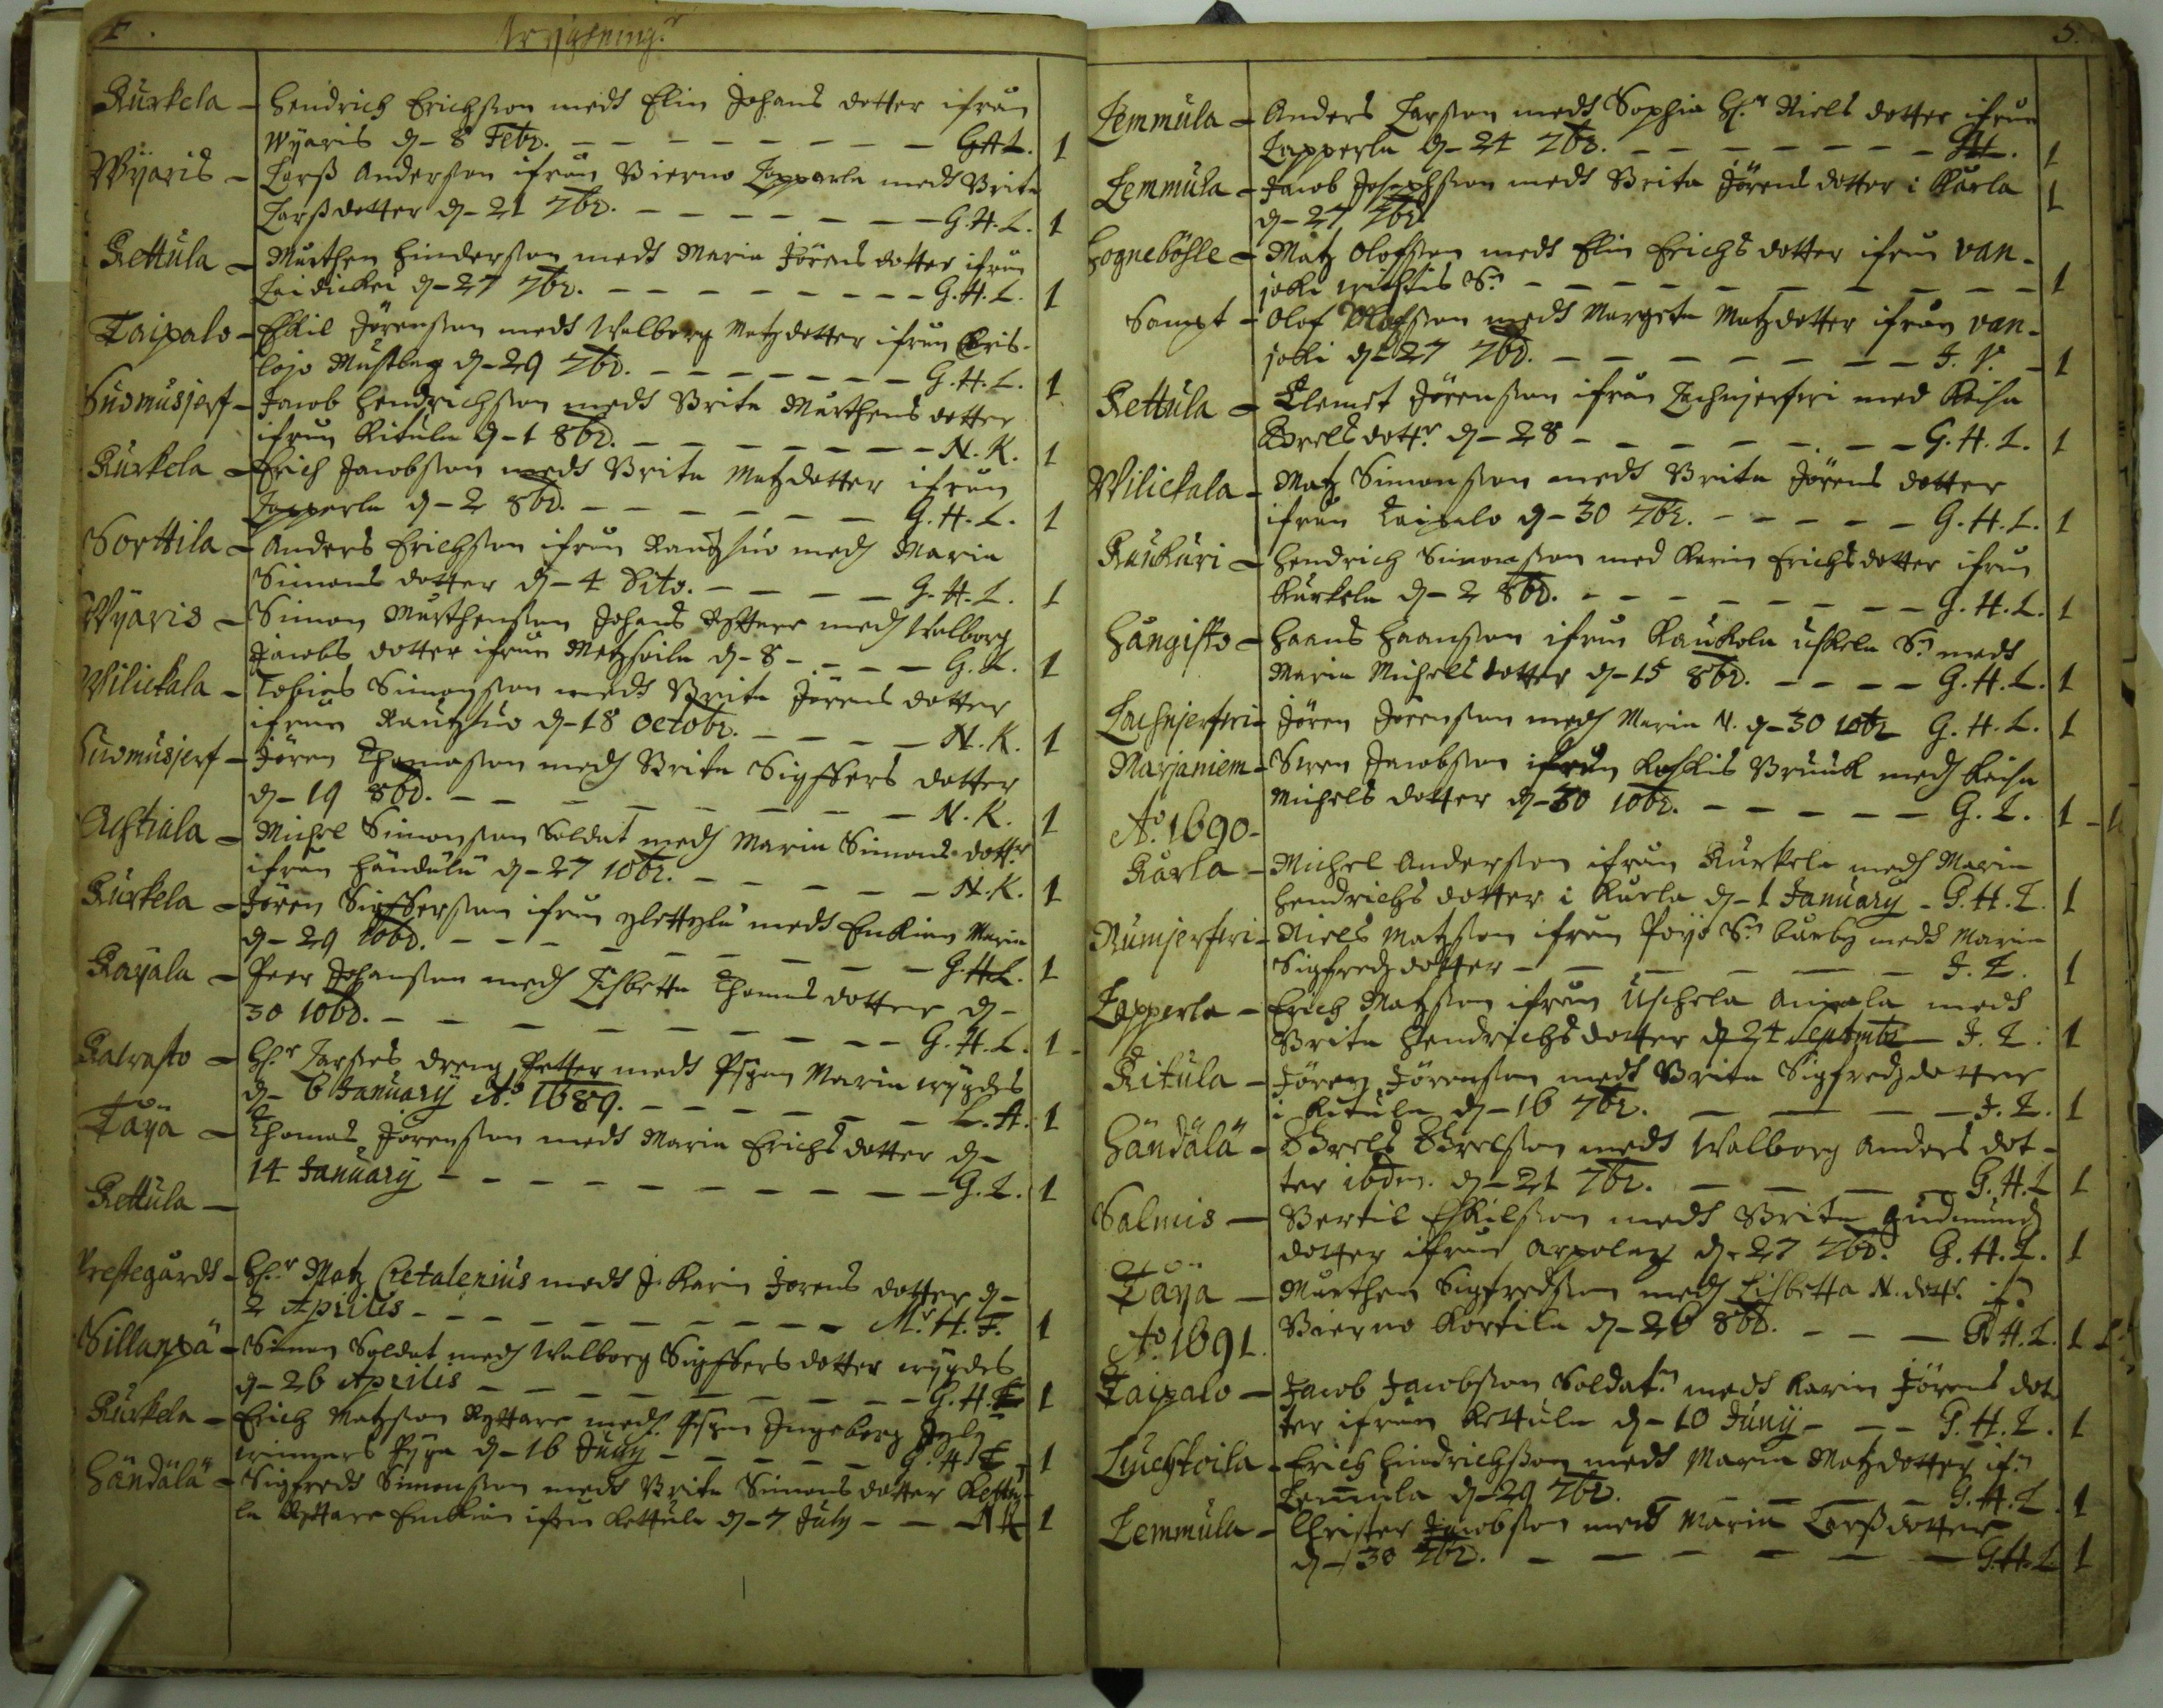 4.
Kurkela - Hendrich Erichsson medh Elin Johans dotter ifrån
Wÿaris d - 8 Febr. - G.H.L. 1
Wÿaris - Larss Andersson ifrån Bierno Lapparla medh Brita
Larssdotter d - 21 7br. - G.H.L. 1
Kettula - Murthen Hindersson medh Maria Jörens dotter ifrån
Laidickei d - 27 7br. - G.H.L. 1
Taipalo - Eskil Jörensson medh Walborg Matzdotter ifrån Caris-
lojo Mustlax d - 29 7br. - G.H.L. 1
Suomusjerf - Jacob Hendrichsson medh Brita Murthens dotter
ifrån Kitula d - 1 8br. - N.K. 1
Kurkela - Erich Jacobsson medh Brita Matzdotter ifrån
Lapperla d - 2 8br. - G.H.L. 1
Sorttila - Anders Erichsson ifrån Rautzsuo medh Maria
Simons dotter d - 4 Dito. - G.H.L. 1
Wÿaris - Simon Murthensson Johans Ryttare medh Walborg
Jacobs dotter ifrån Metzkoila d - 8 - G.L. 1
Wilickala - Tobias Simonsson medh Brita Jörens dotter
ifrån Rautzsuo d - 18 Octobr. - N.K. 1
Suomusjerf - Jören Thomasson medh Brita Sigffers dotter
d - 19 8br. - N.K. 1
Achtiala - Michel Simonsson Soldat medh Maria Simons dottr
ifrån Händälä d - 27 10br. - N.K. 1
Kurkela - Jören Sigffersson ifrån Ylettylä medh Enkian Maria
d - 29 10br. - G.H.L. 1
Rayala - Peer Johansson medh Lisbetta Thomas dotter d -
30 10br. - G.H.L. 1
Katrasto - Hr Larses dreng Petter medh Pigan Maria wygdes
d - 6 January Ao 1689. - L.A. 1
Täyä - Thomas Jörensson medh Maria Erichsdotter d -
14 January - G.L. 1
Kettula -
Prestegårdh - Hr Matz Cretalenius medh J. Karin Jörens dotter d -
2 Aprilis - Mr H.F. 1
Sillanpä - Simon Soldat medh Walborg Sigffersdotter wygdes
d - 26 Aprilis - G.H.L. 1
Kurkela - Erich Matzson Ryttare medh Pigan Ingeborg
Pyga d - 16 Juny - G.H.L. 1
Händälä - Sigfredh Simonsson medh Brita Simons dotter Kettu-
la Ryttare Enkian ifrån Kettula d - 7 July - NK 1
5.
Lemmula - Anders Larsson medh Sophia Hr Niels dotter ifrån
Lapperla d - 24 7br. - 1
Lemmula - Jacob Josephsson medh Brita Jörens dotter i Karla 1
d - 27 7br.
Hognebösle - Matz Olofsson medh Elin Erichs dotter ifrån Van-
joki wichtis Sn - 1
Sampt - Olof Olofsson medh Margeta Matzdotter ifrån Van-
joki d - 27 7br. - 1
Kettula - Clemet Jörensson ifrån Lachnjerfwi med Keisa
Brels dottr d - 28 - G.H.L. 1
Wilickala - Matz Simonsson medh Brita Jörens dotter
ifrån Taipalo d - 30 7br. - G.H.L. 1
Kaukuri - Hendrich Simonsson med Karin Erichsdotter ifrån
Kurkela d - 2 8br. - G.H.L. 1
Hångisto - Haans Haansson ifrån Kaukola Uskela Sn medh
Maria Michelsdotter d - 15 8br. - G.H.L. 1
Lachnjerfwi - Jören Jörensson medh Maria N. d - 30 10br G.H.L. 1
Marjaniem - Sven Jacobsson ifrån Koskis Bruuk medh Keisa
Michels dotter d - 30 10br. - G.L. 1
Ao 1690 -
Karla - Michel Andersson ifrån Kurkela medh Maria
Hendrichs dotter i Karla d - 1 January - G.H.L. 1
Rumjerfwi - Niels Matzson ifrån Poyo Sn båcby medh Maria
Sigfredz dotter - J.L. 1
Lapperla - Erich Matzson ifrån Uschela Anjala medh
Brita Hendrichsdotter d 24 Septmbr - J.L. 1
Kitula - Jören Jörensson medh Brita Sigfredzdotter
i Kitula d - 16 7br. - J.L. 1
Händälä - Brels Brelsson medh Walborg Anders dot-
ter ibdm. d - 21 7br. - G.H.L 1
Salmis - Bertil Eskilsson medh Brita Gudmundz
dotter ifrån Arpolax d - 27 7br. G.H.L. 1
Täya - Murthen Sigfredsson medh Lisbetta N. dottr if.
Bierno Kortila d - 26 8br. - G.H.L. 1
Ao 1691.
Taipalo - Jacob Jacobsson Soldatn medh Karin Jörens dot-
ter ifrån Kettula d - 10 Juny - G.H.L. 1
Luchtoila - Erich Hindrichsson medh Maria Matzdotter ifn
Lemula d - 29 7br. - G.H.L. 1
Lemmula - Christer Jacobsson medh Maria Larssdotter
d - 30 7br. - G.H.L 1